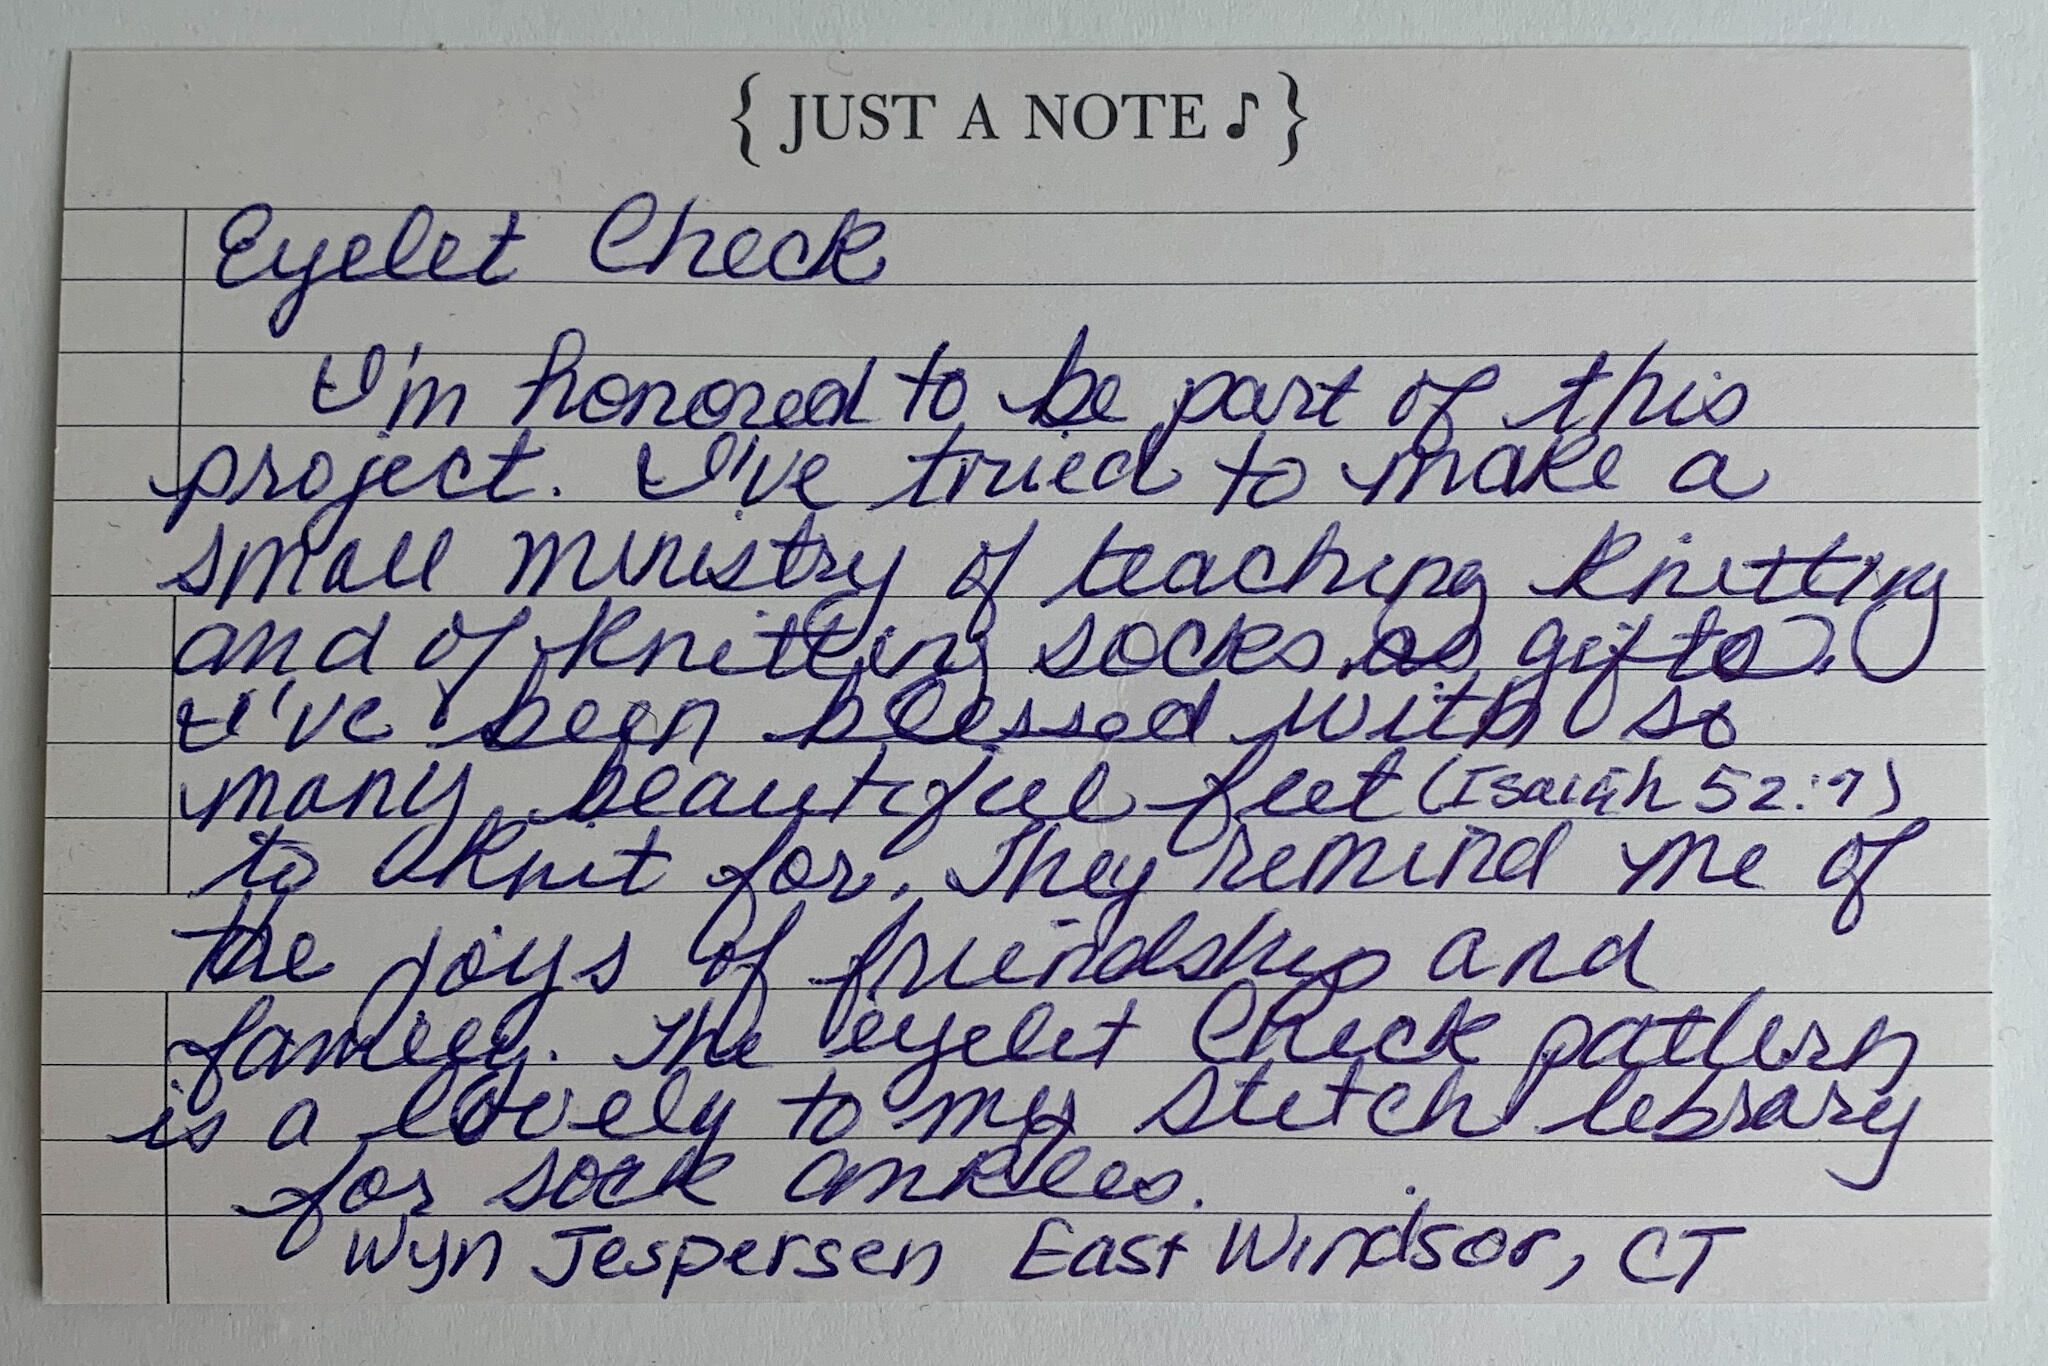 { JUST A NOTE ♪ }
Eyelet Check
I'm honored to be part of this
project. I've tried to make a
small ministry of teaching knitting
and of knitting socks as gifts.
I've been blessed with so
many beautiful feet (Isaiah 52:7)
to knit for. They remind me of
the joys of friendship and
family. The eyelet check pattern
is a lovely to my stitch library
for sock ankles.
Wyn Jespersen East Windsor, CT